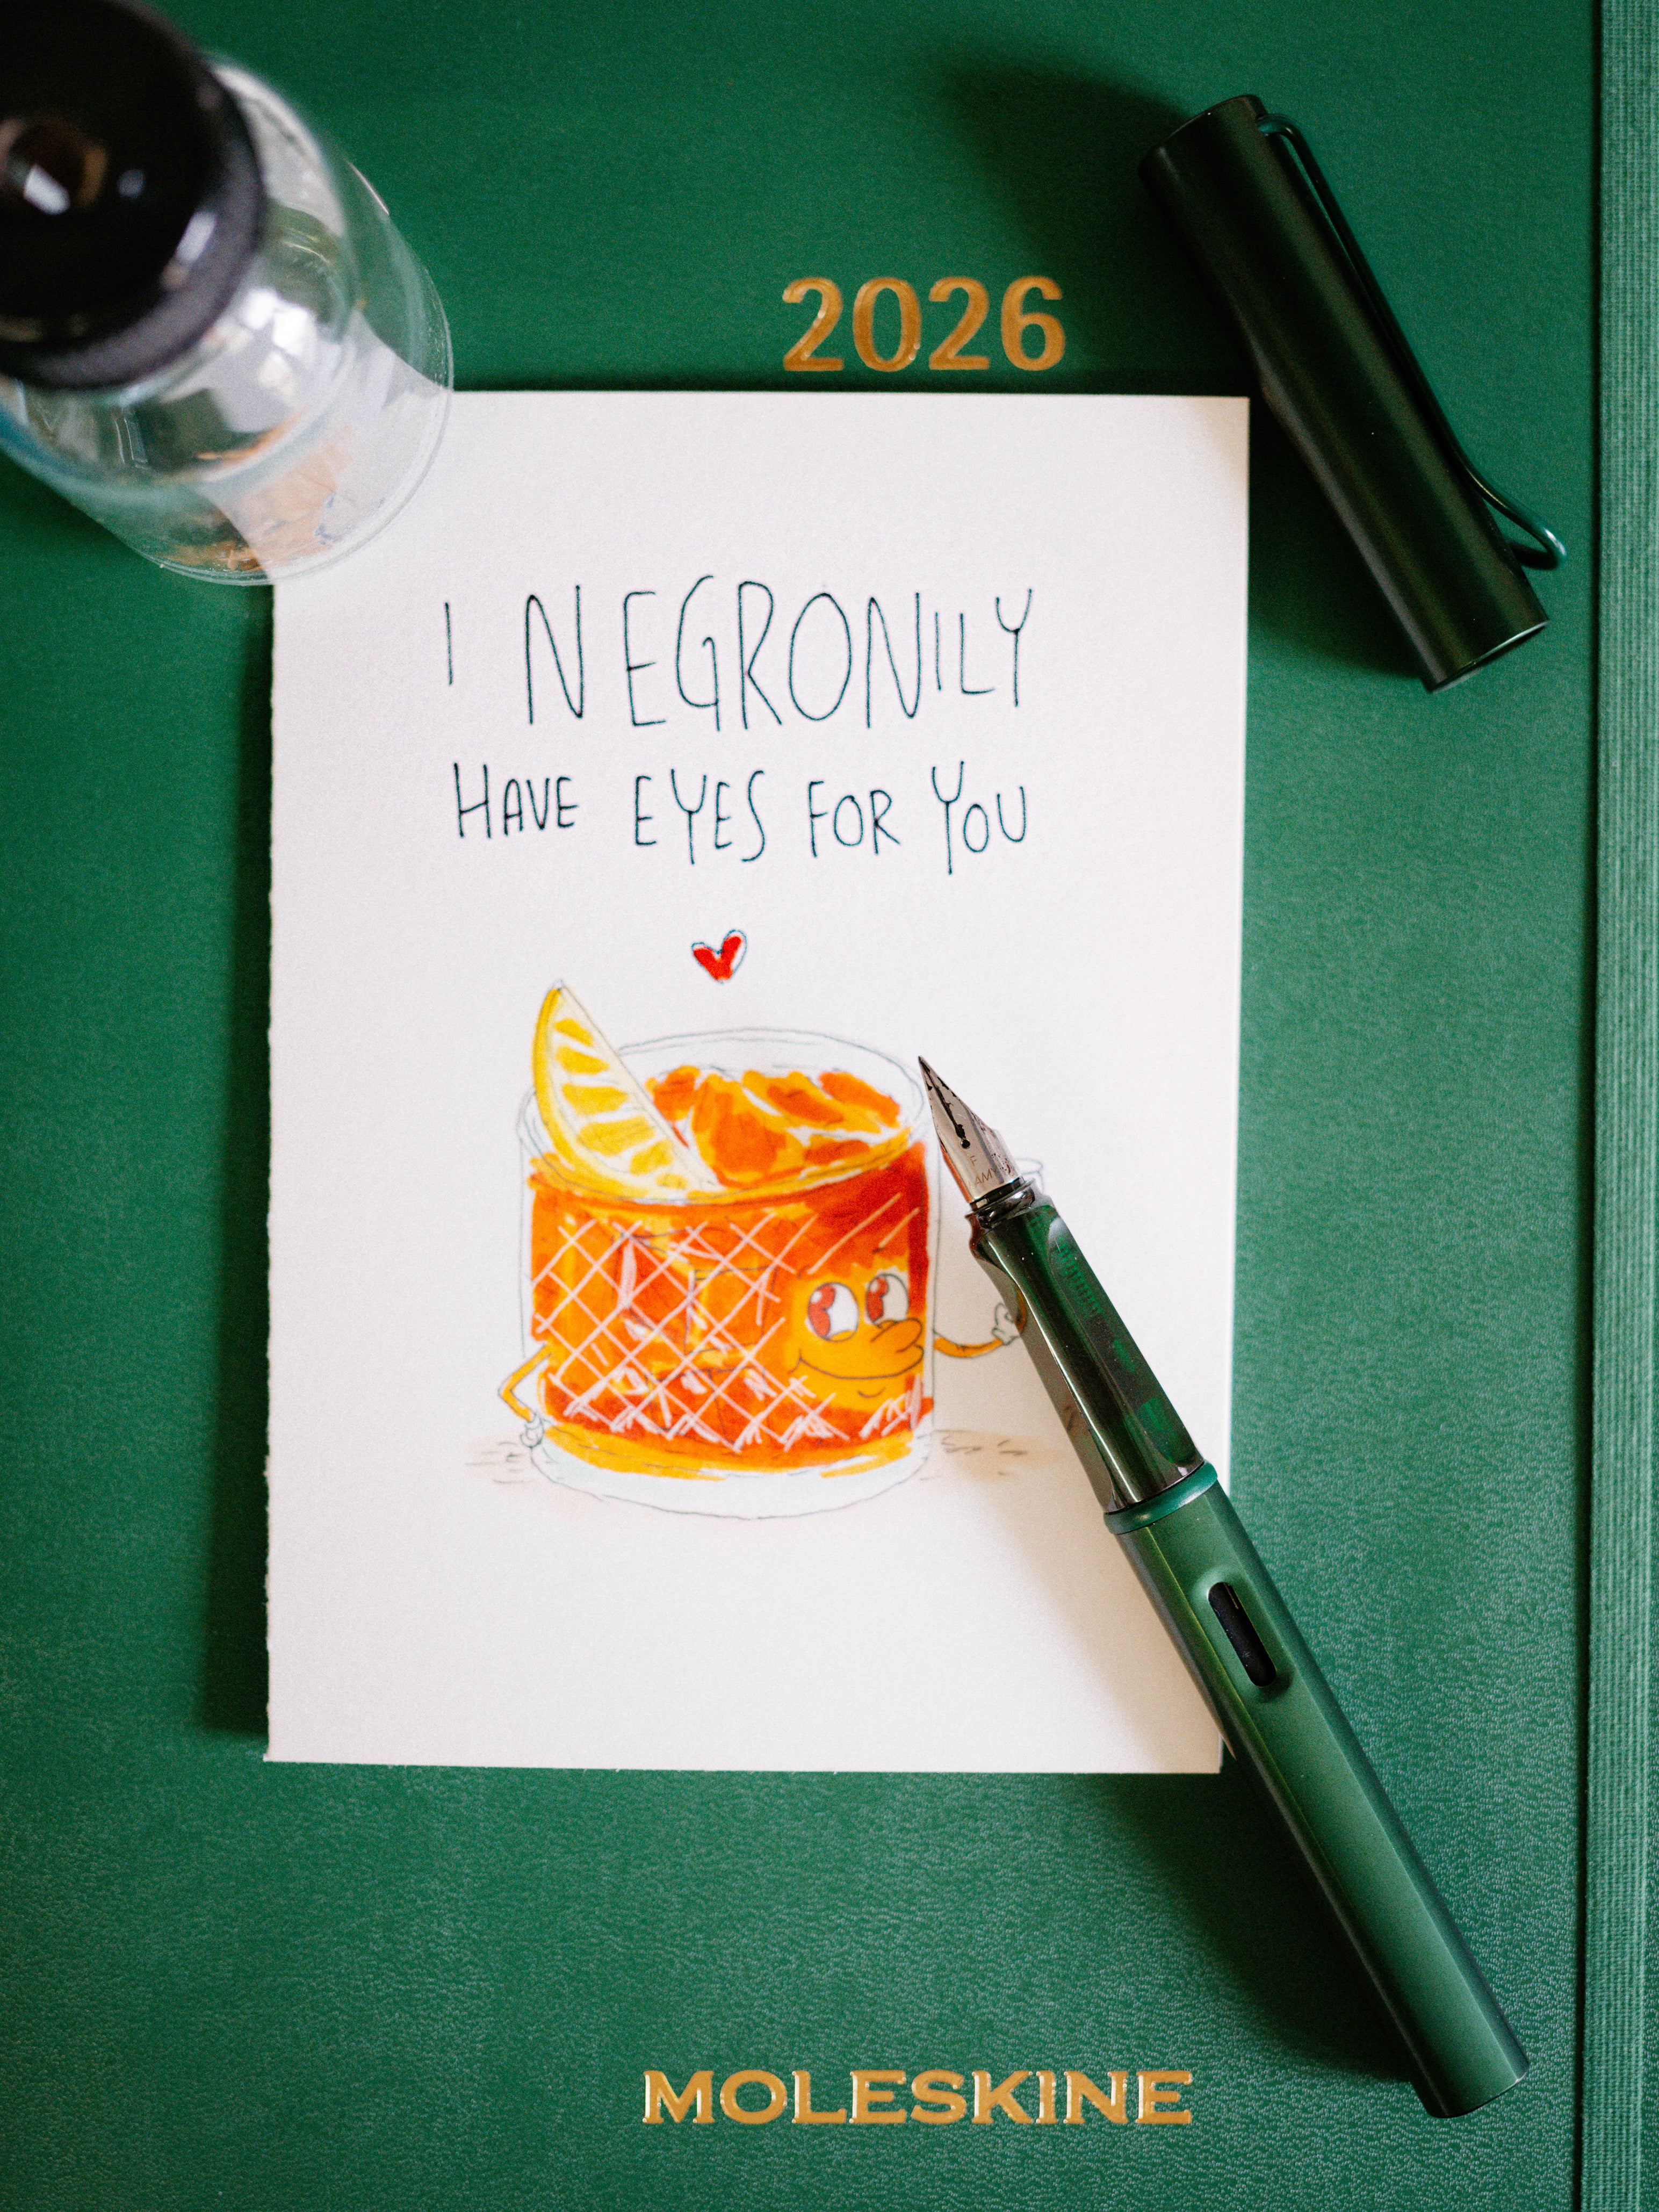 2026
I NEGRONILY
HAVE EYES FOR YOU
F
MOLESKINE